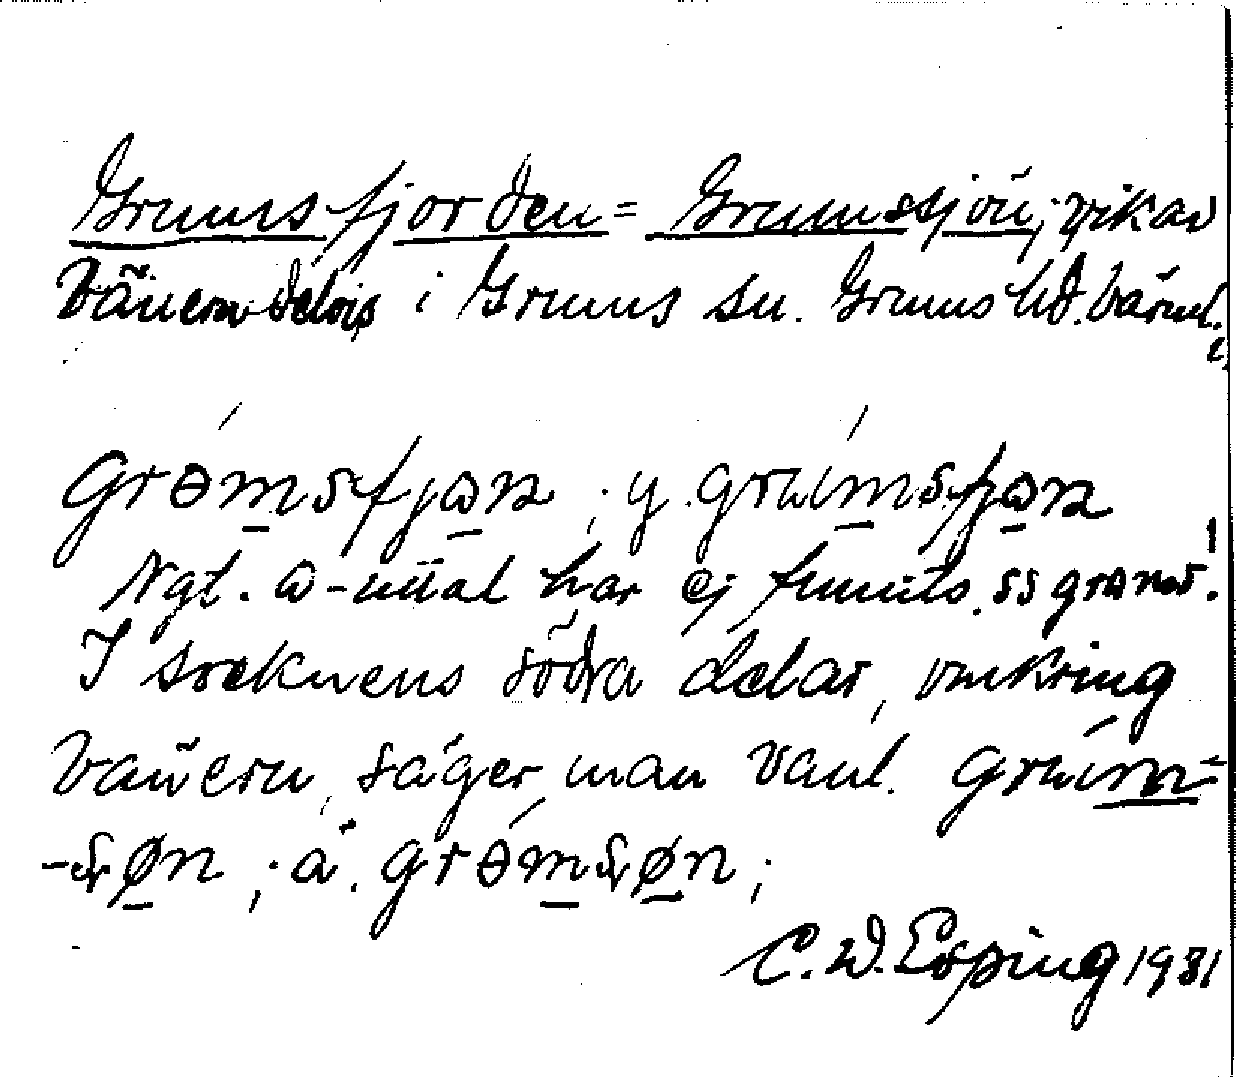 Grumsfjorden = Grumssjön; vik av
Vänern delvis i Grums sn. Grums hd. Värml.
grɵmsfjɷn ; y. grumsfjɷn
Ngt. ɷ-uttal har ej funnits
I socknens södra delar, omkring
Vänern, säger man vanl. grum=
-sjøn ; ä. grɵmsjøn ;
C. W. Esping 1931